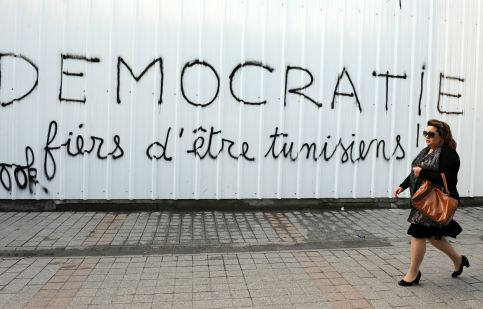 DEMOCRATIE
fiérs d'être tunisiens !